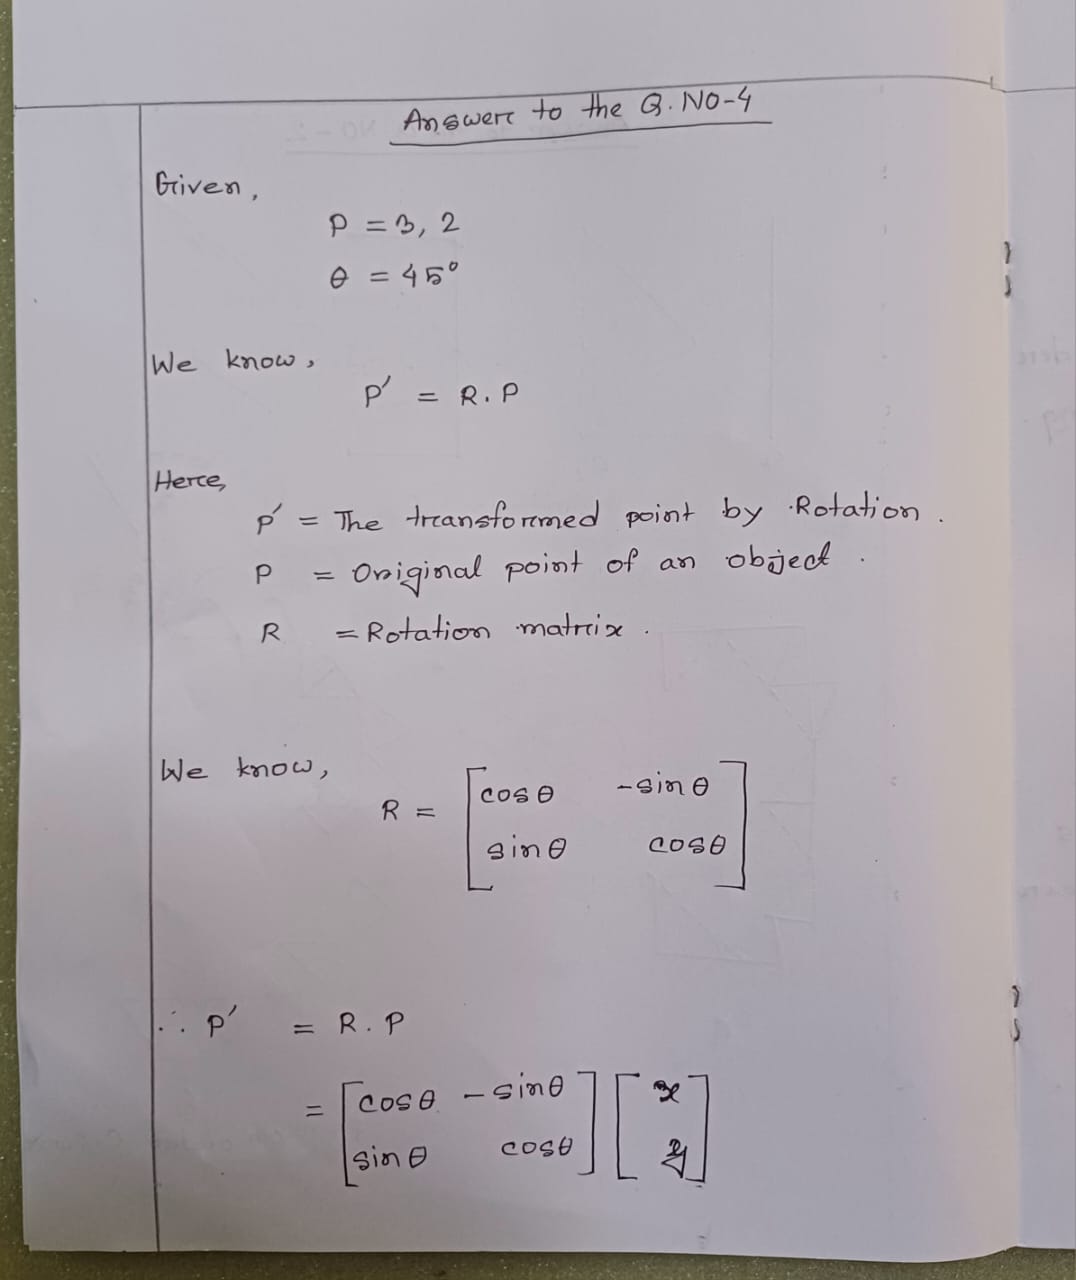 Answer to the Q. NO-4
Given,
P = 3, 2
θ = 45°
We know,
P' = R.P
Here,
P' = The transformed point by Rotation.
P = Original point of an object.
R = Rotation matrix.
We know,
R = [cosθ -sinθ
sinθ cosθ]
∴ P' = R.P
= [cosθ -sinθ] [x]
[sinθ cosθ] [y]